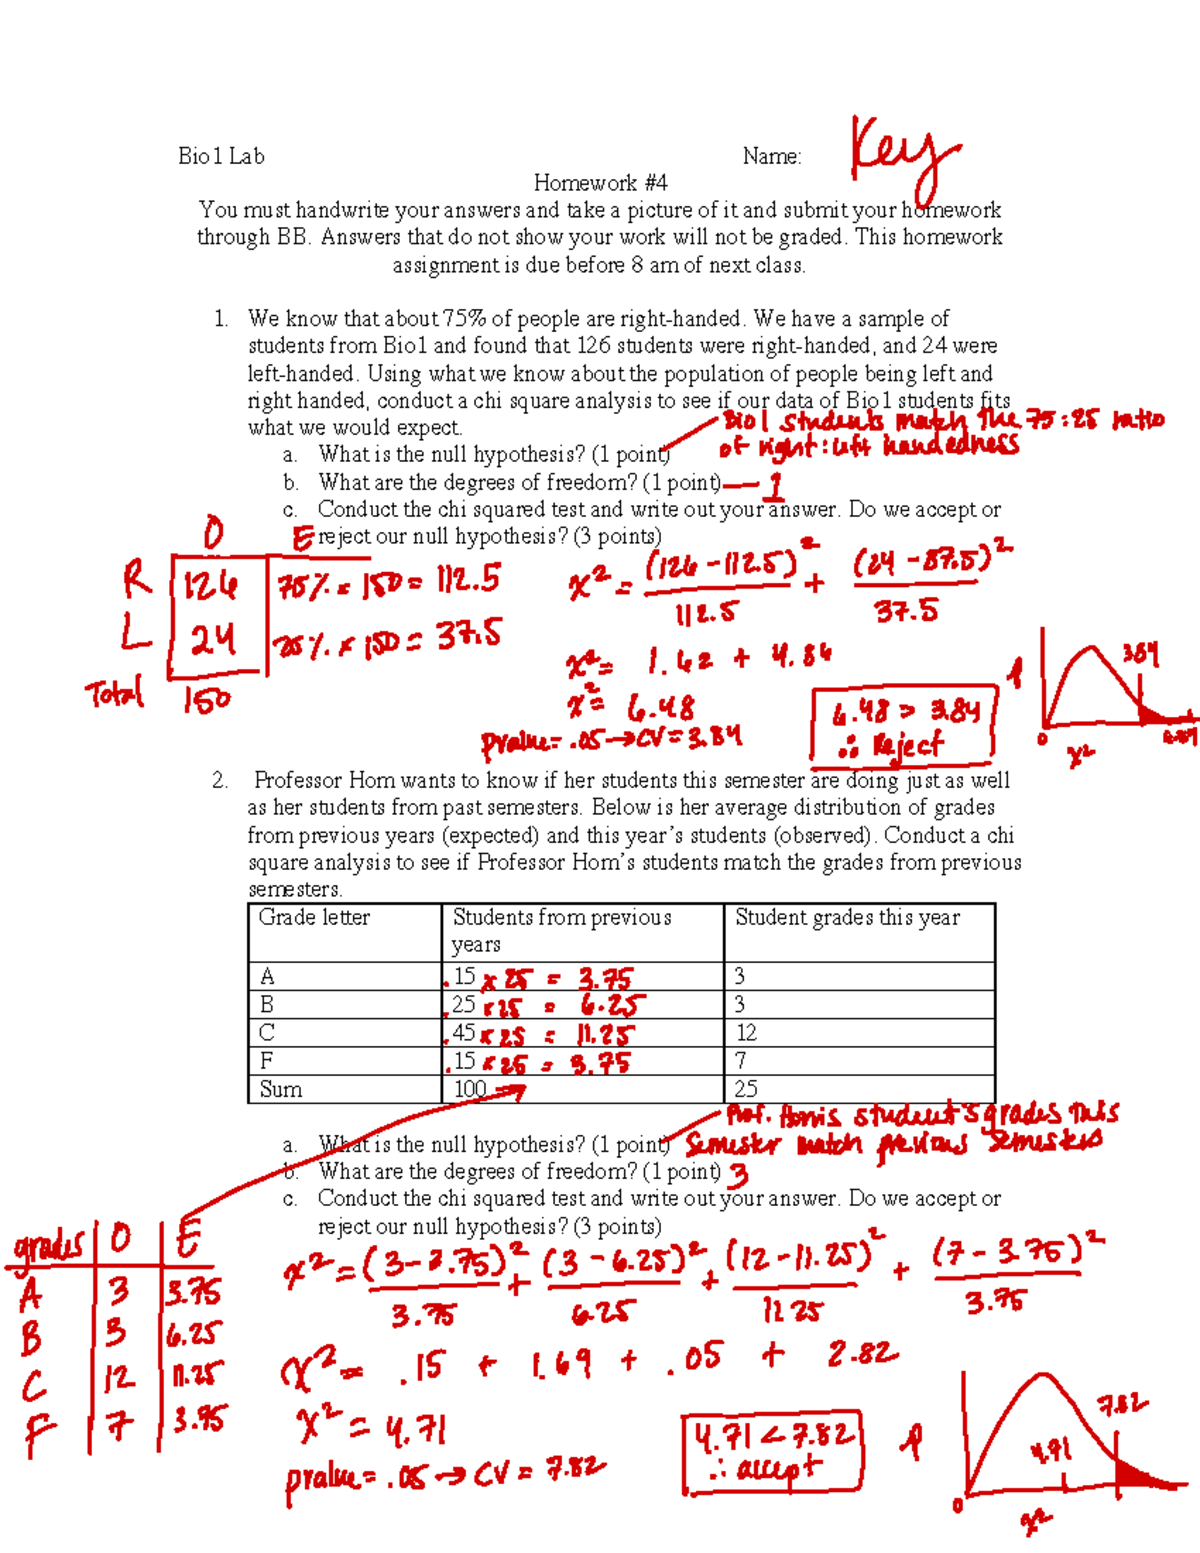 Bio1 Lab Name: Key
Homework #4
You must handwrite your answers and take a picture of it and submit your homework
through BB. Answers that do not show your work will not be graded. This homework
assignment is due before 8 am of next class.
1. We know that about 75% of people are right-handed. We have a sample of
students from Bio1 and found that 126 students were right-handed, and 24 were
left-handed. Using what we know about the population of people being left and
right handed, conduct a chi square analysis to see if our data of Bio1 students fits
what we would expect.
Bio1 students match the 75:25 ratio
of right:left handedness
a. What is the null hypothesis? (1 point)
b. What are the degrees of freedom? (1 point) — 1
c. Conduct the chi squared test and write out your answer. Do we accept or
reject our null hypothesis? (3 points)
O E
R 126 75% × 150 = 112.5
L 24 25% × 150 = 37.5
Total 150
x² = (126 - 112.5)² / 112.5 + (24 - 37.5)² / 37.5
x² = 1.62 + 4.86
x² = 6.48
pvalue = .05 → CV = 3.84
6.48 > 3.84
∴ Reject
3.84
0
x²
2. Professor Hom wants to know if her students this semester are doing just as well
as her students from past semesters. Below is her average distribution of grades
from previous years (expected) and this year's students (observed). Conduct a chi
square analysis to see if Professor Hom's students match the grades from previous
semesters.
Grade letter Students from previous Student grades this year
years
A .15 × 25 = 3.75 3
B .25 × 25 = 6.25 3
C .45 × 25 = 11.25 12
F .15 × 25 = 3.75 7
Sum 100 25
Prof. Hom's student's grades this
semester match previous semesters
a. What is the null hypothesis? (1 point)
b. What are the degrees of freedom? (1 point) 3
c. Conduct the chi squared test and write out your answer. Do we accept or
reject our null hypothesis? (3 points)
grades O E
A 3 3.75
B 3 6.25
C 12 11.25
F 7 3.75
x² = (3 - 3.75)² / 3.75 + (3 - 6.25)² / 6.25 + (12 - 11.25)² / 11.25 + (7 - 3.75)² / 3.75
x² = .15 + 1.69 + .05 + 2.82
x² = 4.71
pvalue = .05 → CV = 7.82
4.71 < 7.82
∴ accept
7.82
4.71
0
x²